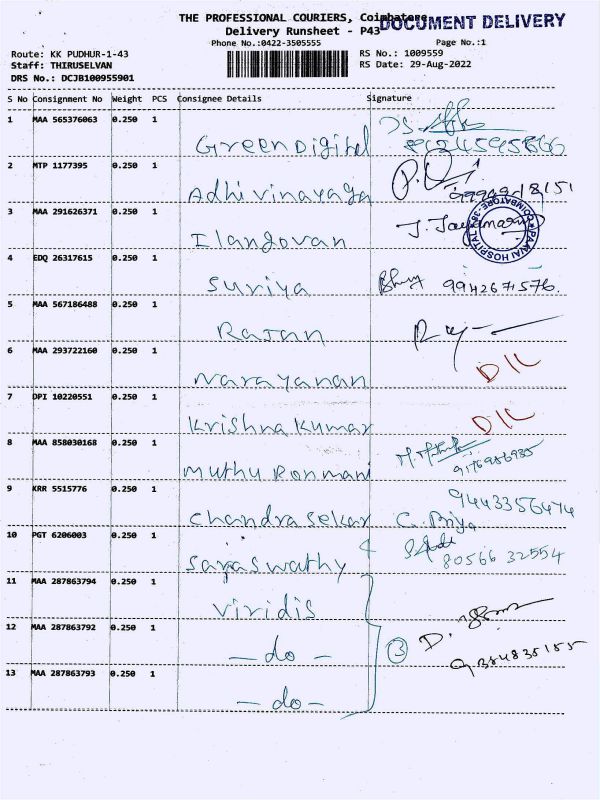 THE PROFESSIONAL COURIERS, Coimbatore
DOCUMENT DELIVERY
Delivery Runsheet - P43
Phone No.:0422-3505555
Page No.:1
Route: KK PUDHUR-1-43
RS No.: 1009559
Staff: THIRUSELVAN
RS Date: 29-Aug-2022
DRS No.: DCJB100955901
S No Consignment No Weight PCS Consignee Details Signature
1 MAA 565376063 0.250 1
Green Digital
2 MTP 1177395 0.250 1
Adhi vinayaga
3 MAA 291626371 0.250 1
Ilangovan J. Jayamarry
PAAVAI HOSPITAL COIMBATORE-38
4 EDQ 26317615 0.250 1
Suriya 9942671576.
5 MAA 567186488 0.250 1
Rajan Raj
6 MAA 293722160 0.250 1
Narayanan D/L
7 DPI 10220551 0.250 1
Krishna Kumar D/L
8 MAA 858030168 0.250 1
Muthu Ronmani 9176986935
9 KRR 5515776 0.250 1
9443356474
Chandra Sekar C. Priya
10 PGT 6206003 0.250 1
Saraswathy 80566 32554
11 MAA 287863794 0.250 1
Viridis
12 MAA 287863792 0.250 1
- do - 3 D.
9384835155
13 MAA 287863793 0.250 1
- do -